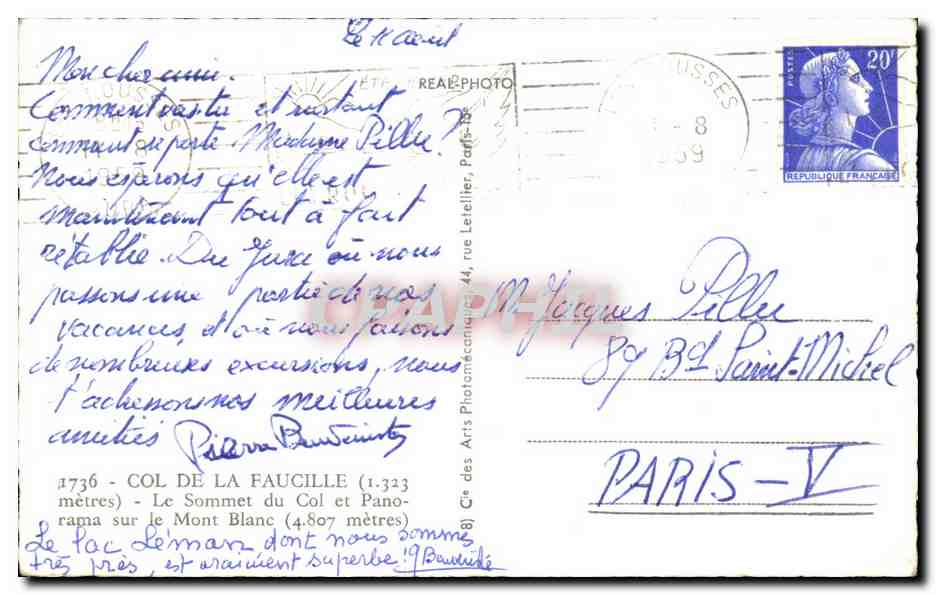 Le 11 août
Mon cher ami.
Comment vas tu et surtout
comment se porte Madame Pillu?
Nous espérons qu'elle est
maintenant tout à fait
rétablie. Du Jura où nous
passons une partie de nos
vacances, et où nous faisons
de nombreuses excursions, nous
t'adressons nos meilleures
amitiés Pierre
1736 - COL DE LA FAUCILLE (1.323
mètres) - Le Sommet du Col et Pano-
rama sur le Mont Blanc (4.807 mètres)
Le lac Léman dont nous sommes
très près, est vraiment superbe!
REAL-PHOTO
8) Cie des Arts Photomécaniques, 44, rue Letellier, Paris-15e
ROUSSES
- 8
1959
POSTES
20F
REPUBLIQUE FRANÇAISE
CPAPHIL
M. Jacques Pillu
89 Bd Saint-Michel
PARIS - V